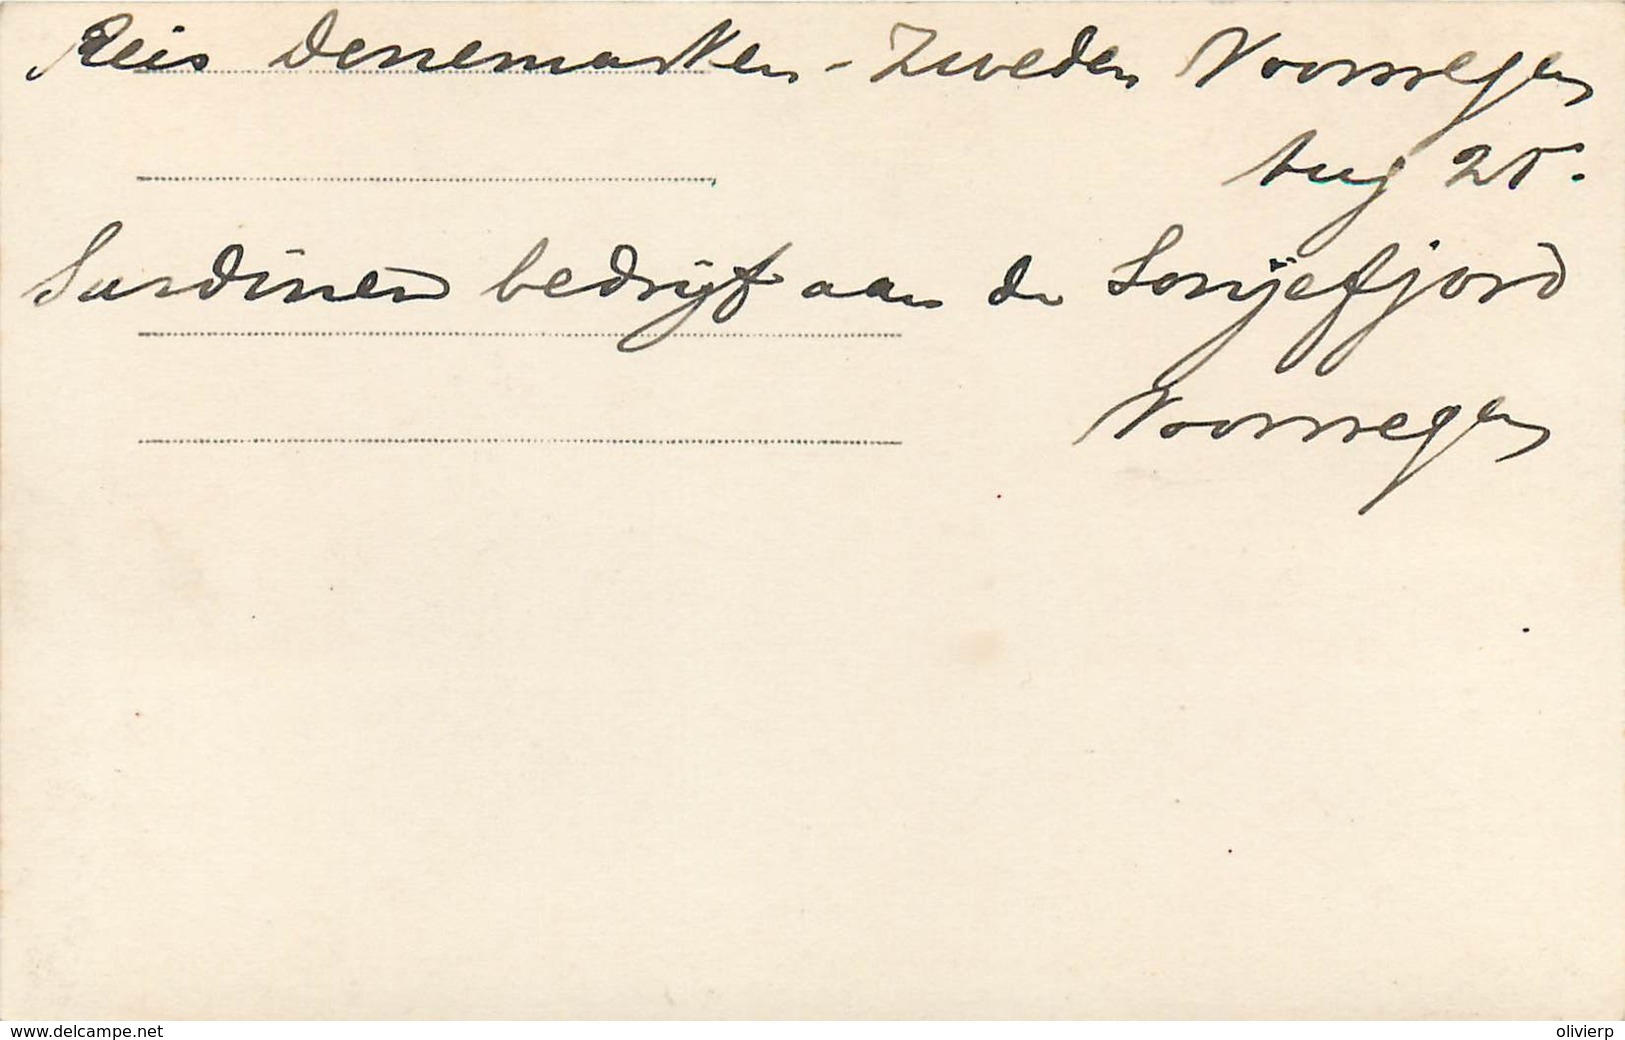 Reis Denemarken - Zweden Noorwegen
Aug 25.
Sardinen bedrijf aan de
Noorwegen
www.delcampe.net
olivierp